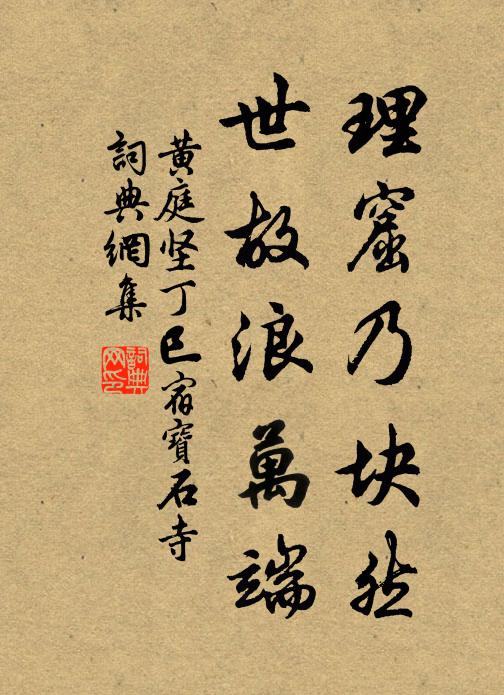 理窟乃块然
世故浪萬端
黄庭坚丁巳宿寶石寺
詞典網集
詞典
网印